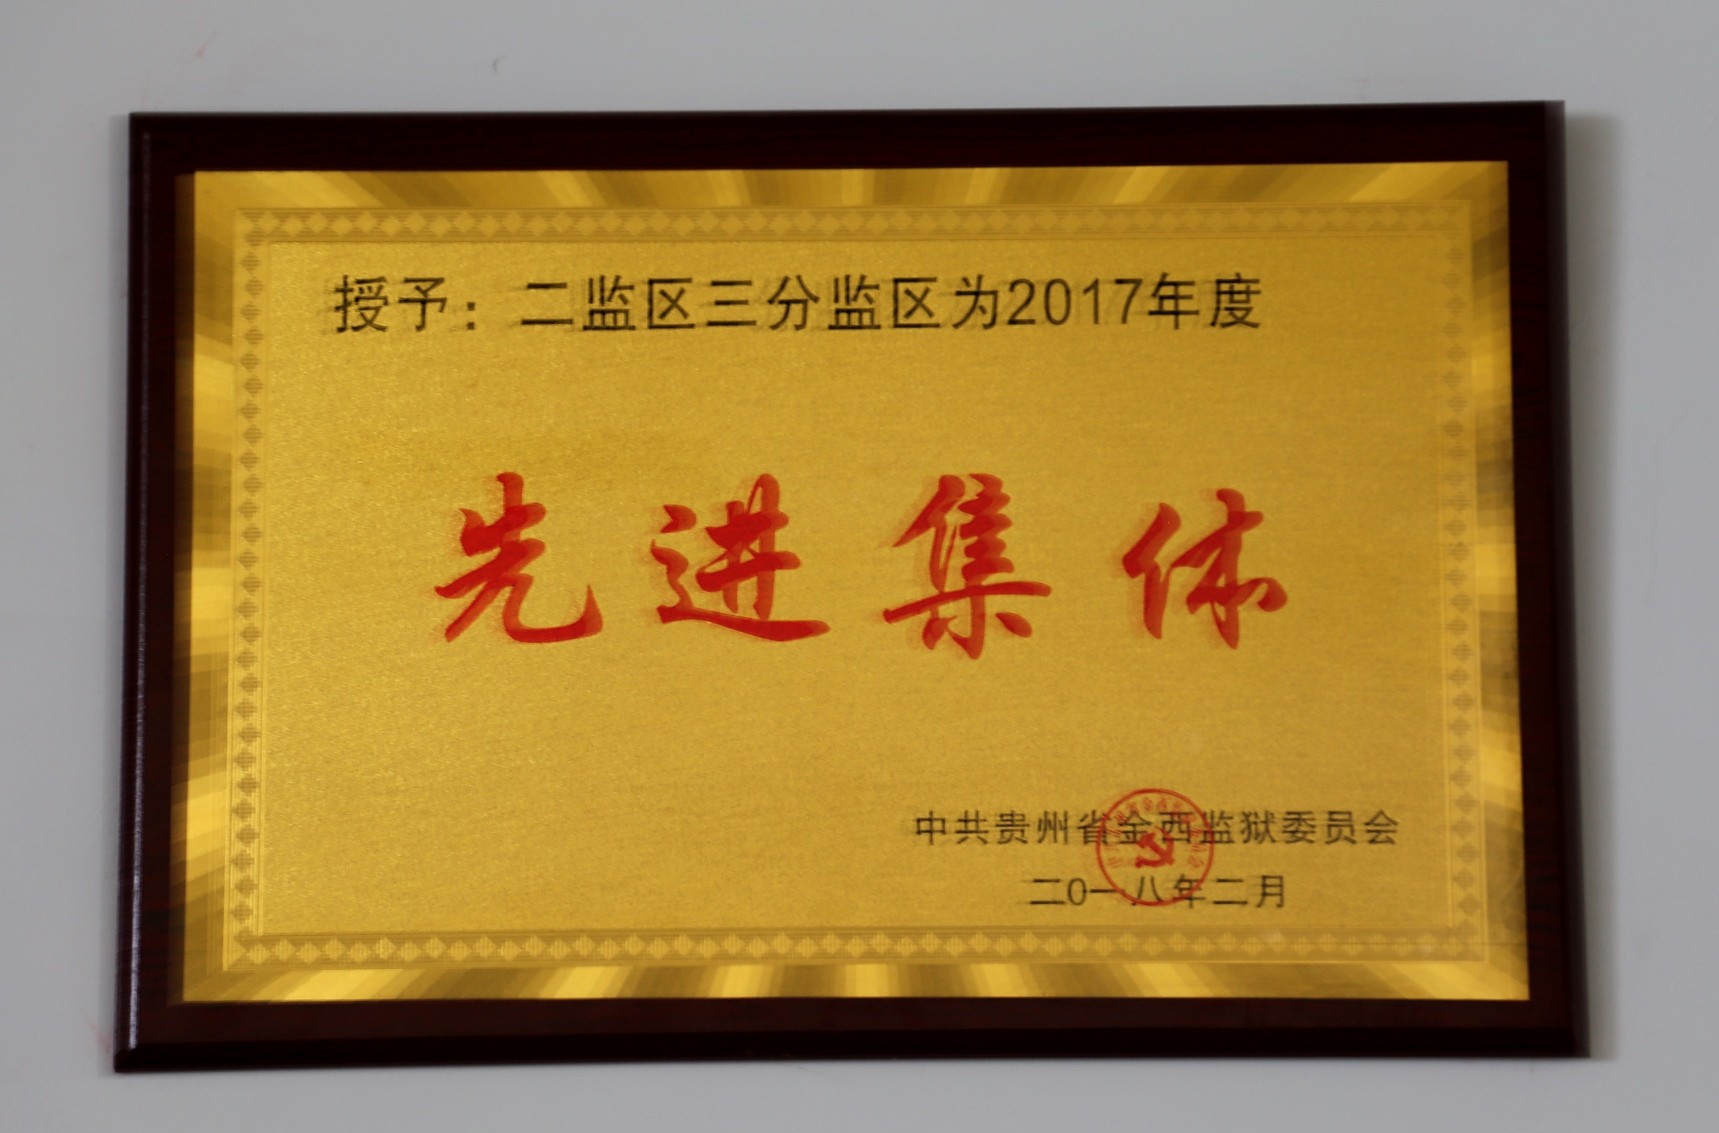 授予：二监区三分监区为2017年度
先进集体
中共贵州省金西监狱委员会
二0一八年二月